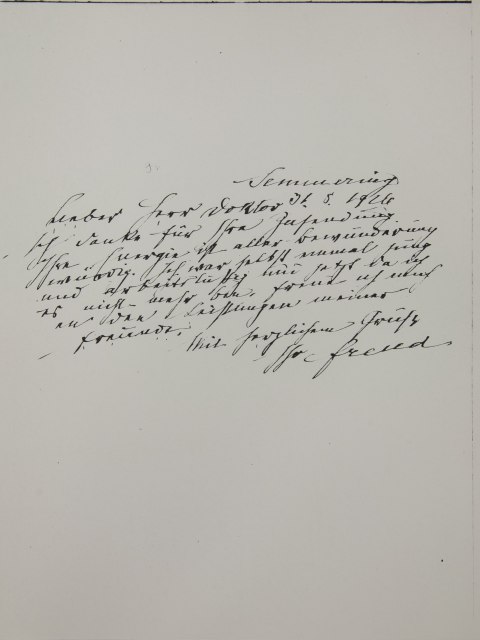 Semmering
31. 8. 1926
Lieber Herr Doktor
Ich danke für Ihre Zusendung
Ihre Energie ist aller Bewunderung
würdig. Ich war selbst einmal jung
und arbeitslustig und jetzt da ich
es nicht mehr bin, freue ich mich
an den Leistungen meiner
Freunde.
Mit herzlichem Gruß
Ihr Freud